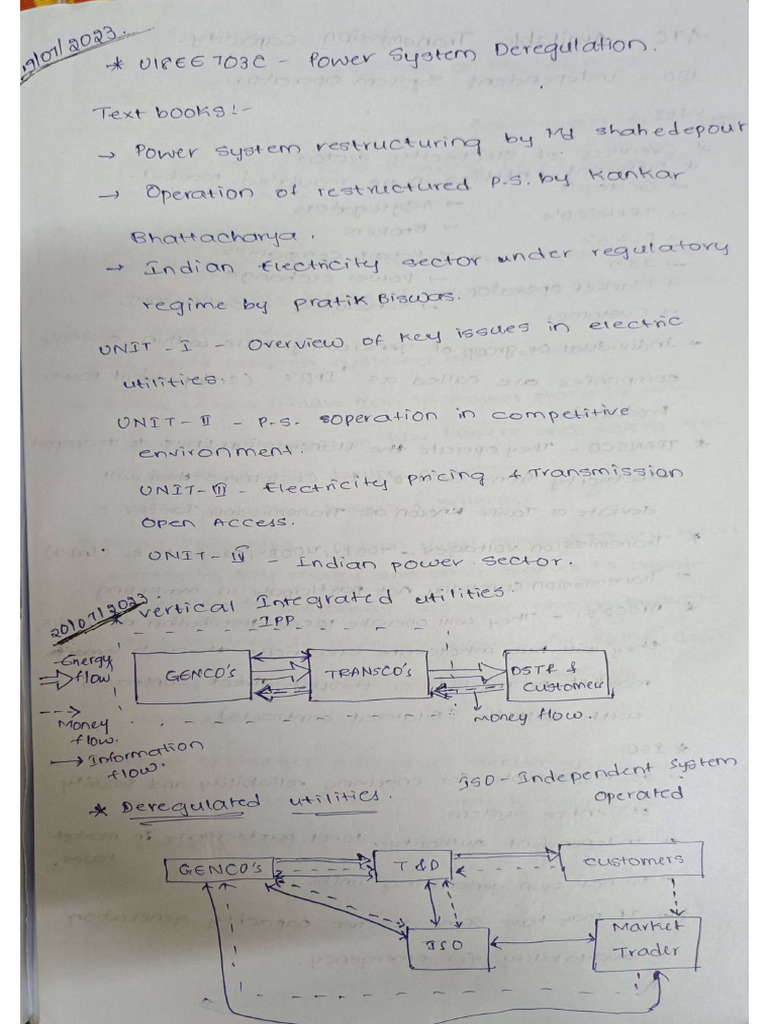 19/07/2023.
* U18EE703C - Power System Deregulation.
Text books:-
→ Power system restructuring by Md shahedepour
→ Operation of restructured P.S. by Kankar
Bhattacharya.
→ Indian Electricity sector under regulatory
regime by Pratik Biswas.
UNIT - I - Overview of key issues in electric
utilities.
UNIT - II - P.S. Operation in competitive
environment.
UNIT - III - Electricity pricing & Transmission
Open Access.
UNIT - IV - Indian power sector.
20/07/2023.
* Vertical Integrated utilities.
IPP
Energy
flow
GENCO's
TRANSCO's
DSTR &
Customers
Money
flow.
Money flow.
→ Information
flow.
ISO - Independent System
Operated
* Deregulated utilities.
GENCO's
T&D
Customers
ISO
Market
Trader